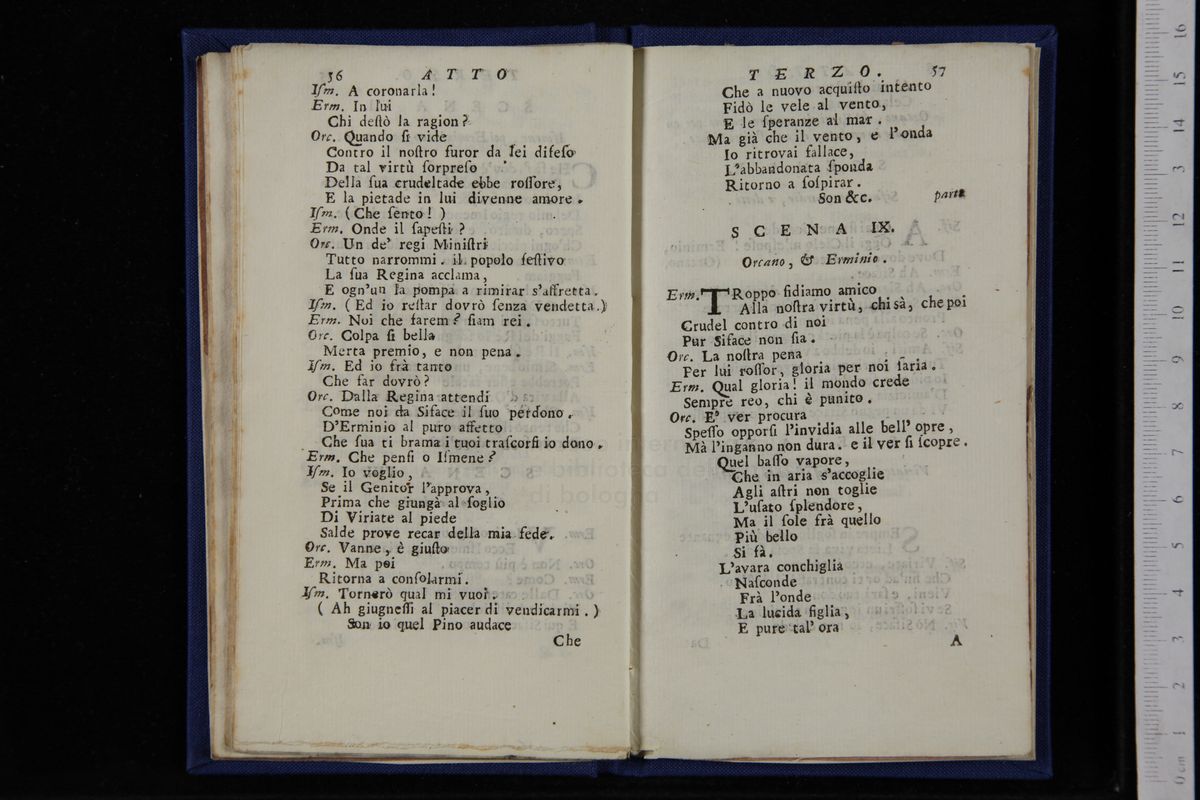 56 ATTO
Iſm. A coronarla!
Erm. In lui
Chi deſtò la ragion?
Orc. Quando ſi vide
Contro il noſtro furor da lei difeſo
Da tal virtù ſorpreſo
Della ſua crudeltade ebbe roſſore,
E la pietade in lui divenne amore.
Iſm. (Che ſento!)
Erm. Onde il ſapeſti?
Orc. Un de' regi Miniſtri
Tutto narrommi. il popolo feſtivo
La ſua Regina acclama,
E ogn'un la pompa a rimirar s'affretta.
Iſm. (Ed io reſtar dovrò ſenza vendetta.)
Erm. Noi che farem? ſiam rei.
Orc. Colpa ſi bella
Merta premio, e non pena.
Iſm. Ed io frà tanto
Che far dovrò?
Orc. Dalla Regina attendi
Come noi da Siface il ſuo perdono.
D'Erminio al puro affetto
Che ſua ti brama i tuoi traſcorſi io dono.
Erm. Che penſi o Iſmene?
Iſm. Io voglio,
Se il Genitor l'approva,
Prima che giunga al ſoglio
Di Viriate al piede
Salde prove recar della mia fede.
Orc. Vanne, è giuſto
Erm. Ma poi
Ritorna a conſolarmi.
Iſm. Tornerò qual mi vuoi.
(Ah giugneſſi al piacer di vendicarmi.)
Son io quel Pino audace
Che
TERZO. 57
Che a nuovo acquiſto intento
Fidò le vele al vento,
E le ſperanze al mar.
Ma già che il vento, e l'onda
Io ritrovai fallace,
L'abbandonata ſponda
Ritorno a ſoſpirar.
Son &c. parte
SCENA IX.
Orcano, & Erminio.
Erm. TRoppo fidiamo amico
Alla noſtra virtù, chi sà, che poi
Crudel contro di noi
Pur Siface non ſia.
Orc. La noſtra pena
Per lui roſſor, gloria per noi ſaria.
Erm. Qual gloria! il mondo crede
Sempre reo, chi è punito.
Orc. E' ver procura
Speſſo opporſi l'invidia alle bell' opre,
Mà l'inganno non dura. e il ver ſi ſcopre.
Quel baſſo vapore,
Che in aria s'accoglie
Agli aſtri non toglie
L'uſato ſplendore,
Ma il ſole frà quello
Più bello
Si fà.
L'avara conchiglia
Naſconde
Frà l'onde
La lucida figlia,
E pure tal' ora
A